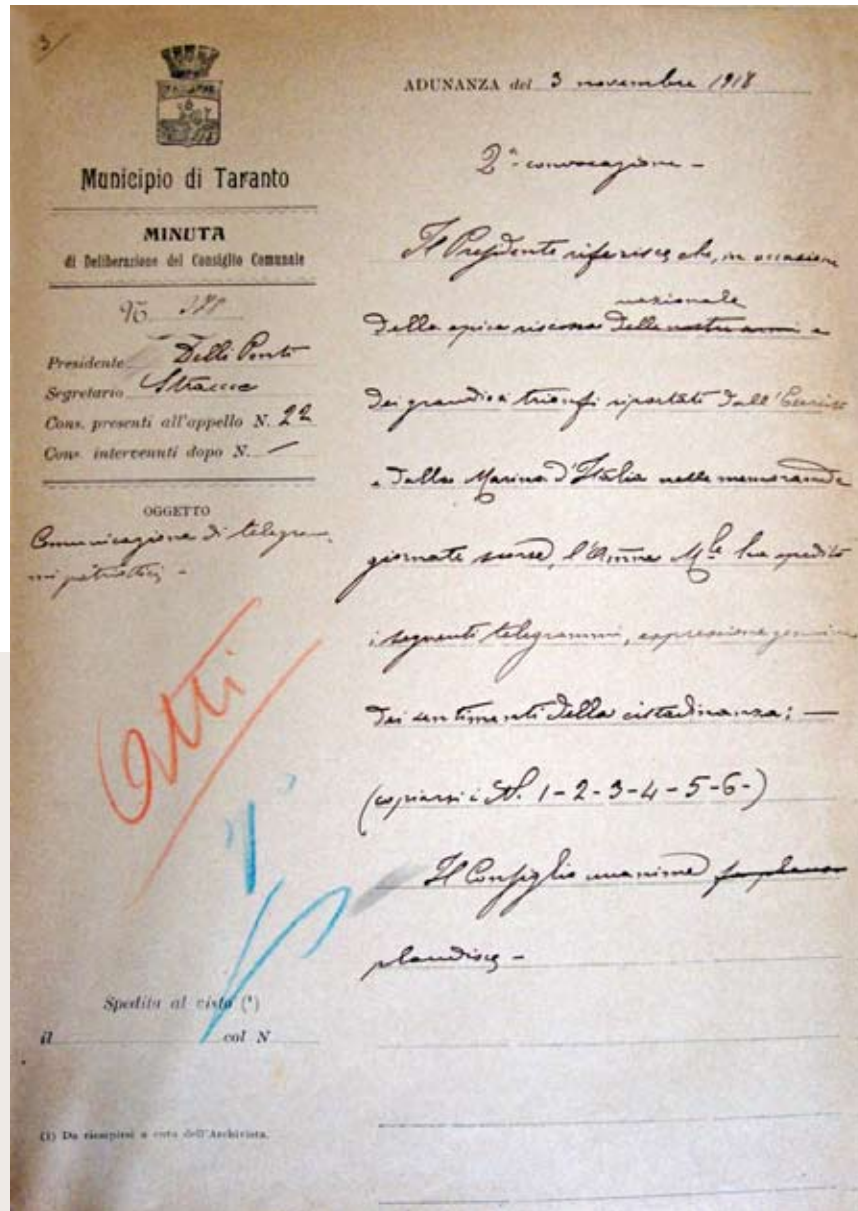 3/
Municipio di Taranto
MINUTA
di Deliberazione del Consiglio Comunale
N.
Presidente Delli Ponti
Segretario Stracca
Cons. presenti all'appello N. 22
Cons. intervenuti dopo N. —
OGGETTO
Comunicazione di telegram-
mi patriottici -
Atti
Spedita al visto (¹)
il col N
(1) Da riempirsi a cura dell'Archivista.
ADUNANZA del 3 novembre 1918
2ª convocazione -
Il Presidente riferisce che, in occasione
nazionale
della epica riscossa delle nostre armi e
dei grandiosi trionfi riportati dall'Esercito
e dalla Marina d'Italia nelle memorande
giornate scorse, l'Amme Mle ha spedito
i seguenti telegrammi, espressione genuina
dei sentimenti della cittadinanza; —
(copiarsi i N. 1-2-3-4-5-6-)
Il Consiglio unanime
plaudisce -